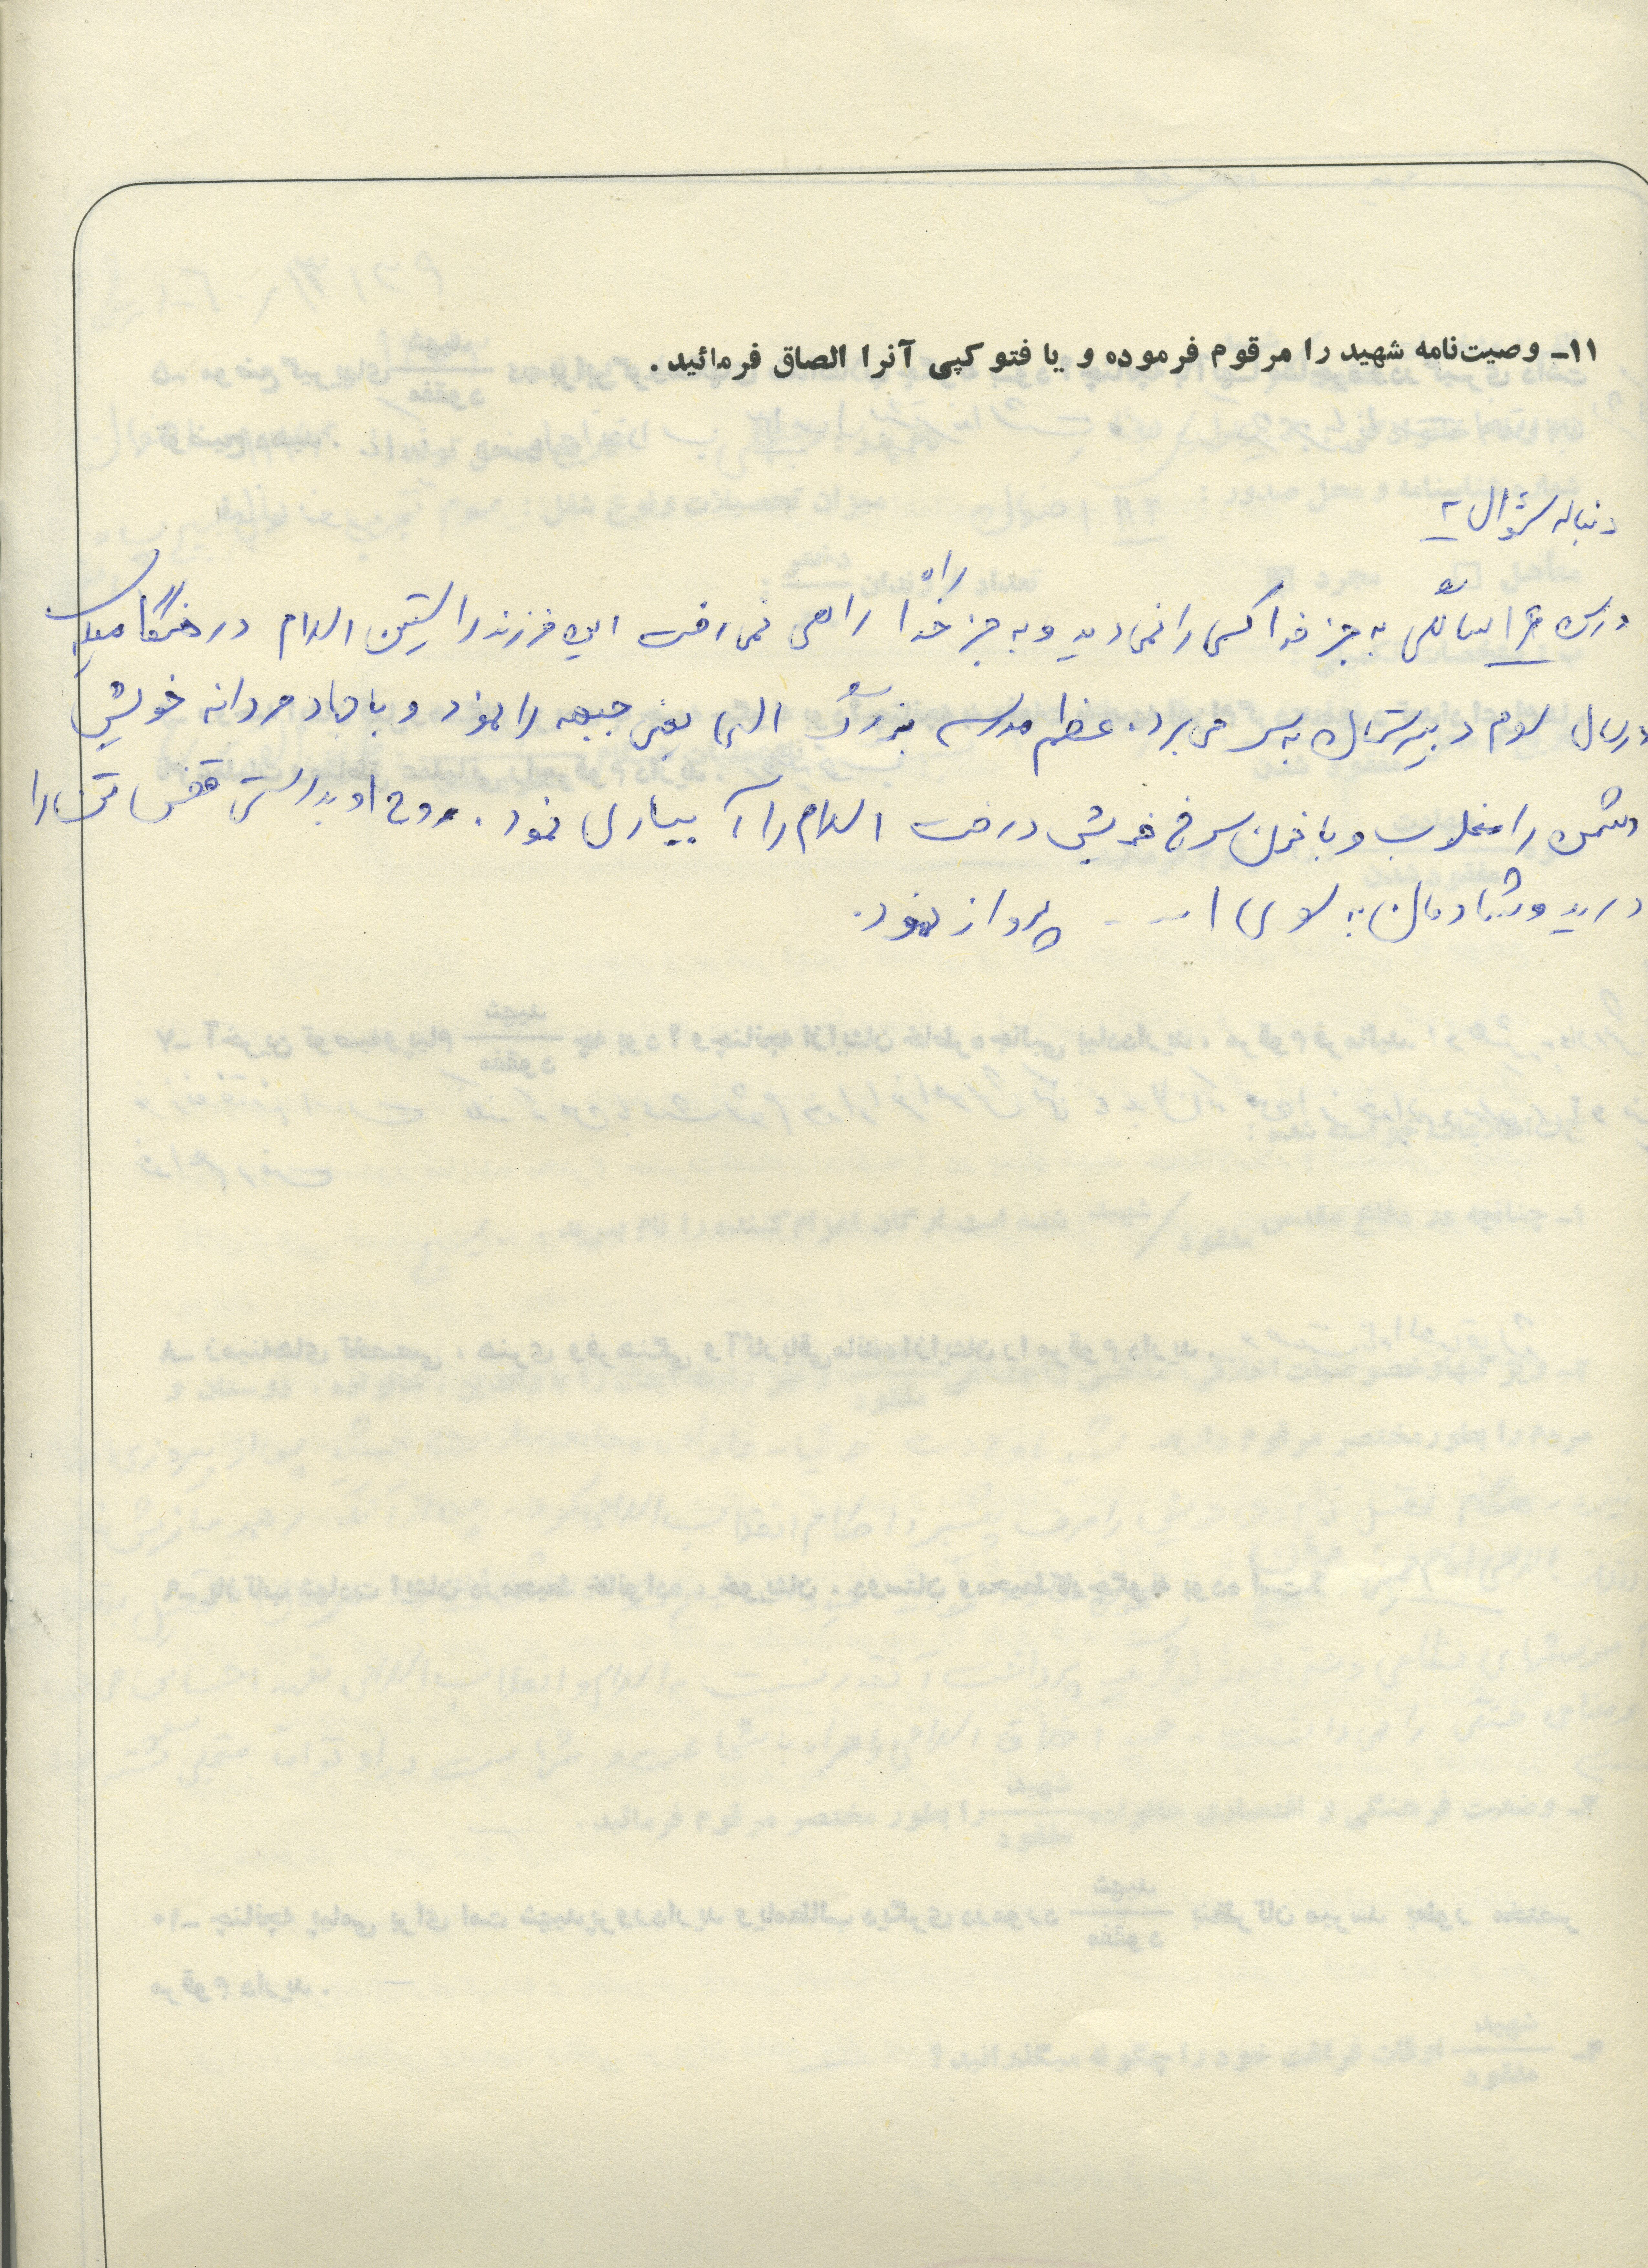 ۱۱- وصیت‌نامه شهید را مرقوم فرموده و یا فتو کپی آنرا الصاق فرمائید.
دنباله سؤال ۲
به جز خدا کسی را نمی دید و به جز راه خدا راهی نمی رفت این فرزند راستین اسلام در هنگامیکه
در سال سوم دبیرستان به سر می برد. عظم مدرسه بزرگ الهی یعنی جبهه را نمود و با جهاد مردانه خویش
دشمن را مغلوب و با خون سرخ خویش درخت اسلام را آبیاری نمود. روح او بدرستی قفس تن را
درید و شادمان به سوی ا... پرواز نمود.